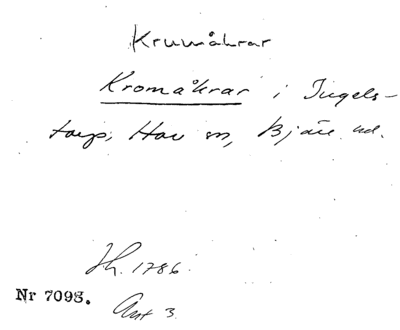 Krumåkrar
Kromåkrar i Ingels-
torp, Hov sn, Bjäre hd.
Sh. 1786.
Nr 7093.
Ant 3.